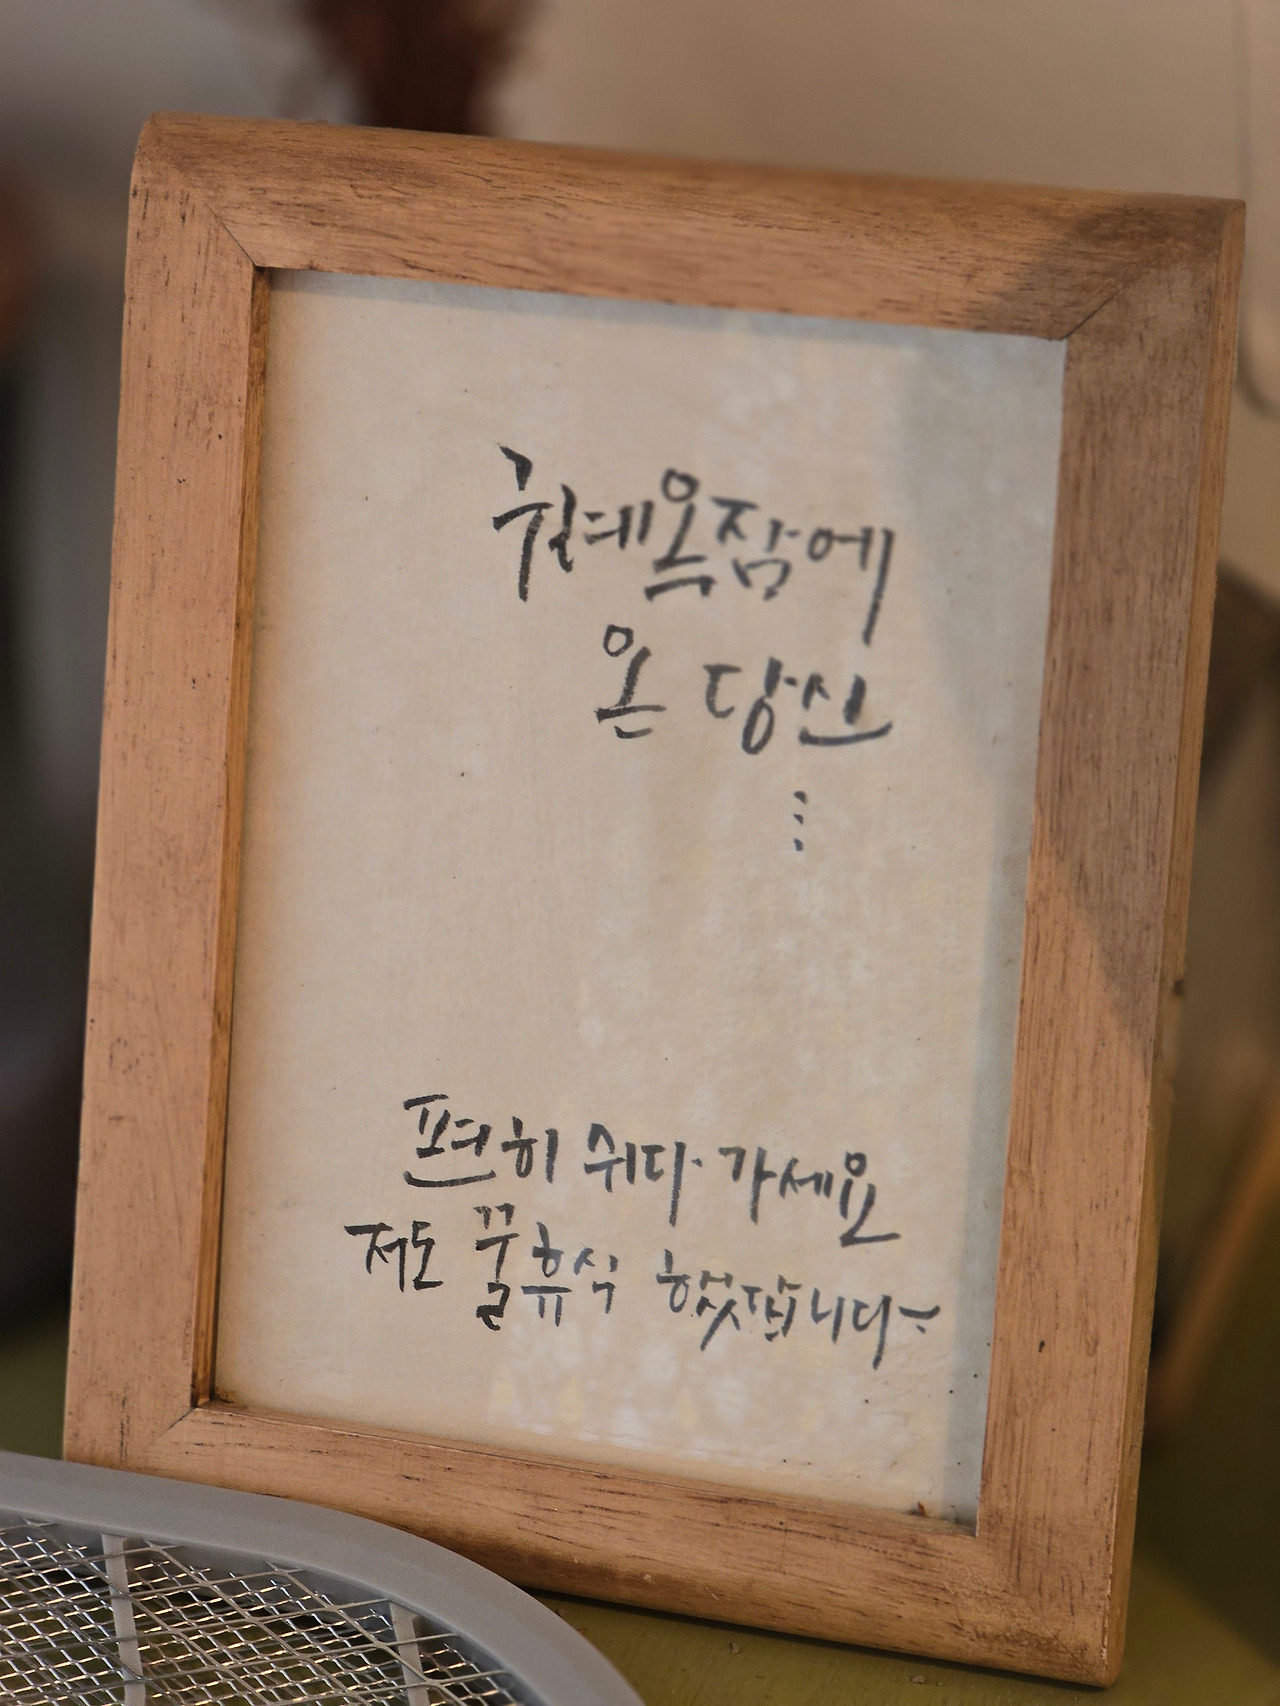 구례옥잠에
온 당신
⋮
편히 쉬다 가세요
저도 꿀휴식 했답니다~